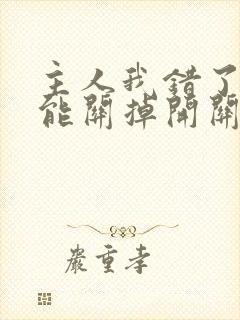 主人我错了
能關掉開關
嚴重孝